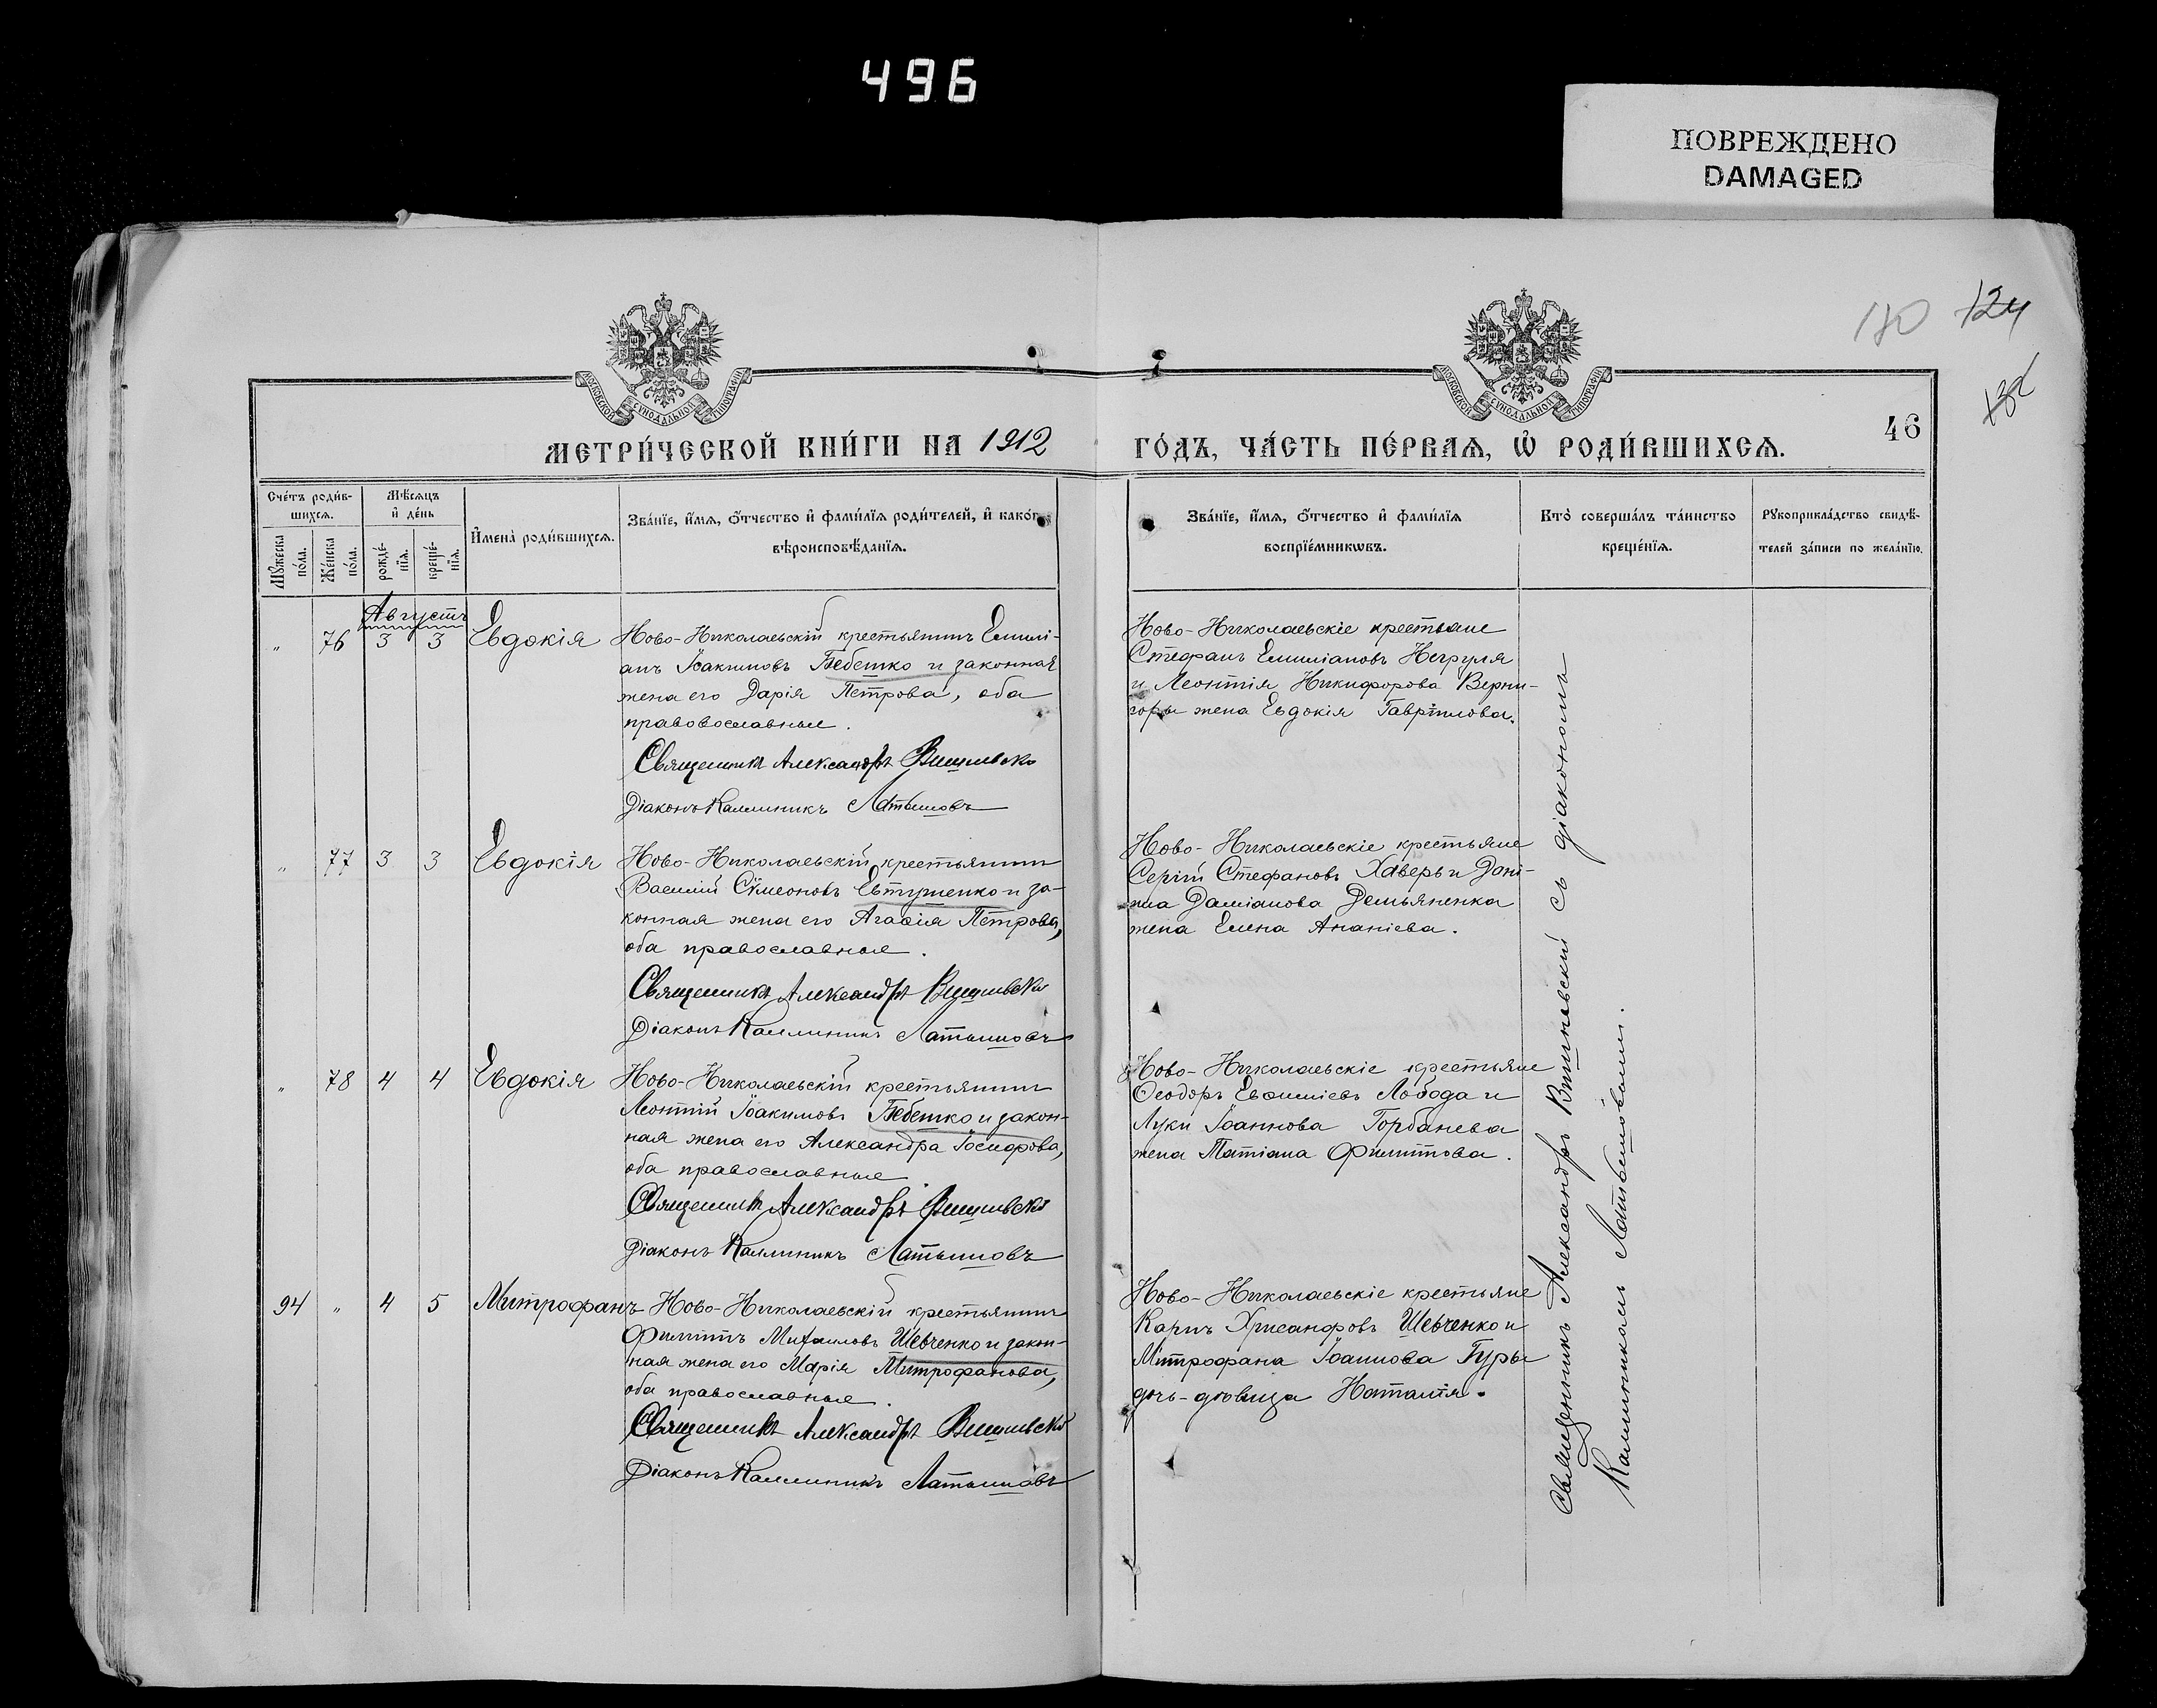 496
ПОВРЕЖДЕНО
DAMAGED
124
46
МОСКОВСКОЙ СѴНОДАЛЬНОЙ ТИПОГРАФІИ
МОСКОВСКОЙ СѴНОДАЛЬНОЙ ТИПОГРАФІИ
МЕТРИ́ЧЕСКОЙ КНИ́ГИ НА 1912
ГО́ДЪ, ЧА́СТЬ ПЕ́РВАѦ, Ѡ҆ РОДИ́ВШИХСѦ.
Сче́тъ роди́в-
шихсѧ.
Мꙋ́жеска по́ла.
Же́нска по́ла.
Мѣ́сѧцъ
и҆ де́нь
рожде́-нїѧ.
креще́-нїѧ.
И҆мена̀ роди́вшихсѧ.
Зва́нїе, и҆́мѧ, ѻ҆́тчество и҆ фами́лїѧ роди́телей, и҆ како́гѡ
вѣроисповѣ́данїѧ.
Зва́нїе, и҆́мѧ, ѻ҆́тчество и҆ фами́лїѧ
воспрїе́мникѡвъ.
Кто̀ соверша́лъ та́инство
креще́нїѧ.
Рꙋкоприкла́дство свидѣ́-
телей за́писи по жела́нїю.
Августъ
„ 76 3 3 Евдокія
Ново-Николаевскій крестьянинъ Емилі-
анъ Іоакимовъ Бебешко и законная
жена его Дарія Петрова, оба
правовославные.
Священникъ Александръ Вишневскій
Діаконъ Каллиникъ Латышовъ
Ново-Николаевскіе крестьяне
Стефанъ Емиліановъ Негруля
и Леонтія Никифорова Верни-
горы жена Евдокія Гавріилова.
„ 77 3 3 Евдокія
Ново-Николаевскій крестьянин
Василій Сѵмеоновъ Евтушенко и за-
конная жена его Агаѳія Петрова,
оба православные.
Священникъ Александръ Вишневскій
Діаконъ Каллиникъ Латышовъ
Ново-Николаевскіе крестьяне
Сергій Стефановъ Хаверь и Дані-
ила Даміанова Демьяненка
жена Елена Ананіева.
„ 78 4 4 Евдокія
Ново-Николаевскій крестьянин
Леонтій Іоакимовъ Бебешко и закон-
ная жена его Александра Іосифова,
оба православные
Священникъ Александръ Вишневскій
Діаконъ Каллиникъ Латышовъ
Ново-Николаевскіе крестьяне
Ѳеодоръ Евѳиміевъ Лобода и
Луки Іоаннова Горбанева
жена Татіана Филиппова.
94 „ 4 5 Митрофанъ
Ново-Николаевскій крестьянинъ
Филиппъ Михаиловъ Шевченко и закон-
ная жена его Марія Митрофанова,
оба православные.
Священникъ Александръ Вишневскій
Діаконъ Каллиникъ Латышовъ
Ново-Николаевскіе крестьяне
Карпъ Хрисанфовъ Шевченко и
Митрофана Іоаннова Гуры
дочь-девица Наталія.
Священникъ Александръ Вишневскій съ діакономъ
Каллиникомъ Латышовымъ.